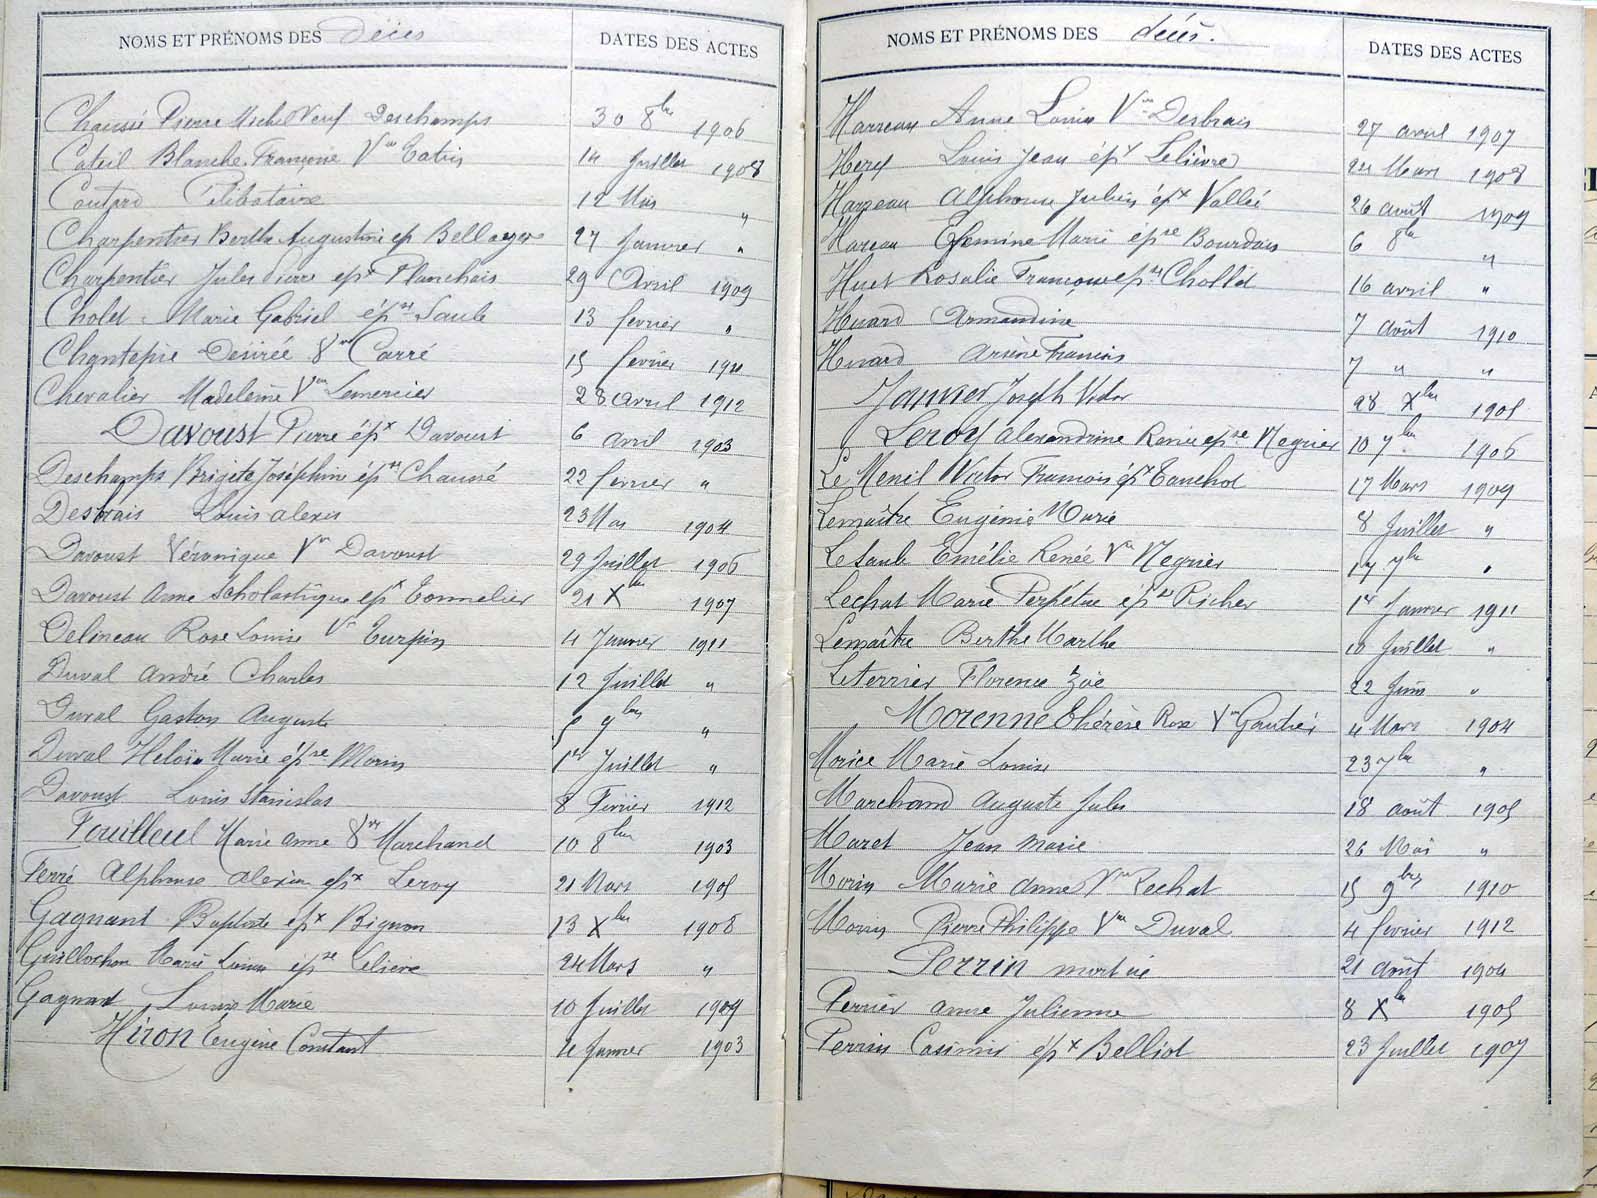 NOMS ET PRÉNOMS DES Décès DATES DES ACTES
Chaussé Pierre Michel Veuf Deschamps 30 8bre 1906
Cateil Blanche Françoise Vve 14 Juillet 1908
Coutard Célibataire 12 Mai "
Charpentier Berthe Augustine ép Bellanger 27 Janvier "
Charpentier Jules Pierre épx Planchais 29 Avril 1909
Cholet Marie Gabriel épse Saule 13 fevrier "
Chantepie Désirée Vve Carré 15 fevrier
Chevalier Madeleine Vve Lemercier 28 avril 1912
Davoust Pierre épx Davoust 6 avril 1903
Deschamps Brigite Joséphine épse Chaussé 22 fevrier "
Desbrais Louis alexis 23 Mai 1904
Davoust Véronique Vve Davoust 29 Juillet 1906
Davoust Anne Scholastique ép Tonnelier 21 Xbre 1907
Delineau Rose Louise Ve Turpin 4 Janvier 1911
Duval André Charles 12 Juillet "
Duval Gaston Auguste 5 9bres "
Duval Heloïse Marie épse Morin 1er Juillet "
Davoust Louis Stanislas 8 Février 1912
Fouilleul Marie Anne Vve Marchand 10 8bre 1903
Ferré Alphonse alexis épx Leroy 21 Mars 1905
Gagnant Baptiste épx Bignon 13 Xbre 1908
Guillochon Marie Louise épse Lelièvre 24 Mars "
Gagnant Louise Marie 10 Juillet 1909
Hiron Eugène Constant 4 Janvier 1903
NOMS ET PRÉNOMS DES décès. DATES DES ACTES
Harreau Anne Louise Vve Desbrais 27 avril 1907
Hery Louis Jean épx Lelièvre 24 Mars 1908
Harreau Alphonse Julien épx Vallée 26 août 1909
Hareau Efemine Marie épse Bourdais 6 8bre "
Huet Rosalie Françoise épse Chollet 16 avril "
Huard Armandine 7 août 1910
Huard Arsène Francis 7 " "
Janvier Joseph Victor 28 Xbre 1905
Leroy Alexandrine Renée épse Negrier 10 7bre 1906
Le Menil Victor François épx Tanchot 17 Mars 1909
Lemaître Eugénie Marie 8 Juillet "
Lesaule Emélie Renée Vve Negrier 17 7bre "
Lechat Marie Perpétue épse Richer 1er Janvier 1911
Lemaître Berthe Marthe 10 Juillet "
Leterrier Florence Zoë 22 Juin "
Morenne Thérèse Rose Vve Gautier 4 Mars 1904
Morice Marie Louise 23 7bre "
Marchand Auguste Jules 18 août 1905
Maret Jean Marie 26 Mai "
Morin Marie Anne Vve Lechat 15 9bres 1910
Morin Pierre Philippe Vve Duval 4 fevrier 1912
Perrin mort né 21 août 1904
Perrier anne Julienne 8 Xbre 1905
Perrin Casimir épx Belliot 23 Juillet 1907